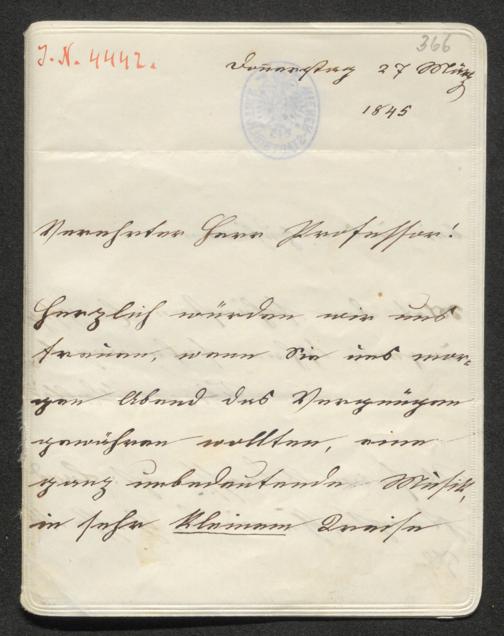 366
J. N. 4442.
Donnerstag 27 März
1845
Verehrter Herr Professor!
Herzlich würden wir uns
freuen, wenn Sie uns mor-
gen Abend das Vergnügen
gewähren wollten, eine
ganz unbedeutende Musik,
in sehr kleinem Kreise